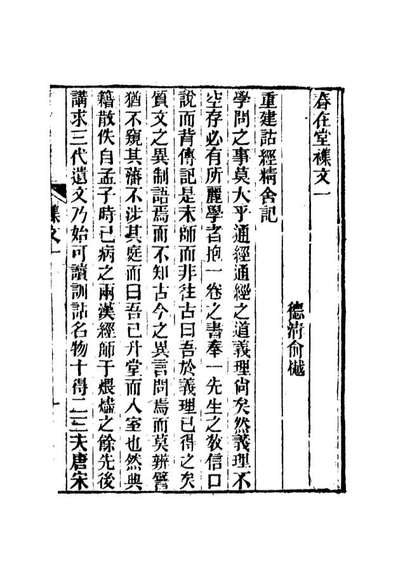 春在堂襍文一
德清俞樾
重建詁經精舍記
學問之事莫大乎通經通經之道義理尙矣然義理不
空存必有所麗學者抱一卷之書奉一先生之敎信口
說而背傳記是末師而非往古曰吾於義理已得之矣
質文之異制語焉而不知古今之異言問焉而莫辨譬
猶不窺其藩不涉其庭而曰吾已升堂而入室也然典
籍散佚自孟子時已病之兩漢經師于煨燼之餘先後
講求三代遺文乃始可讀訓詁名物十得二三夫唐宋
襍文一